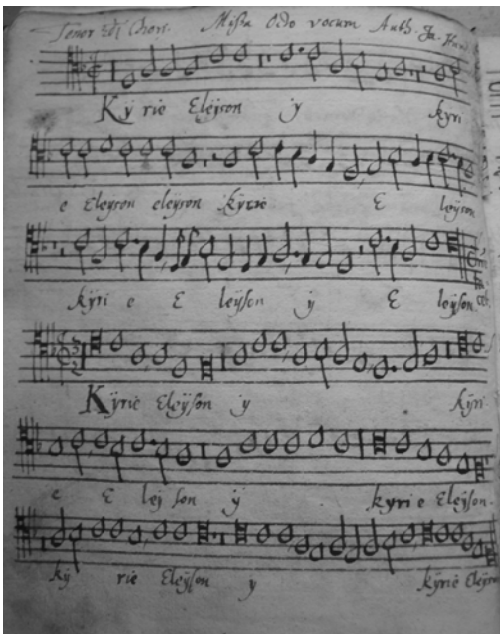 Tenor Missa Octo vocum Auth. Ja.
Kÿ rie Eleÿson ÿ kÿri
e Eleÿson eleÿson kÿrie E leÿson
kÿri e E leÿson ÿ E leÿson
Kÿrie Eleÿson ÿ kÿri
e E leÿ son ÿ kyrie Eleÿson.
kÿ rie Eleÿson ÿ kÿrie Eleÿson